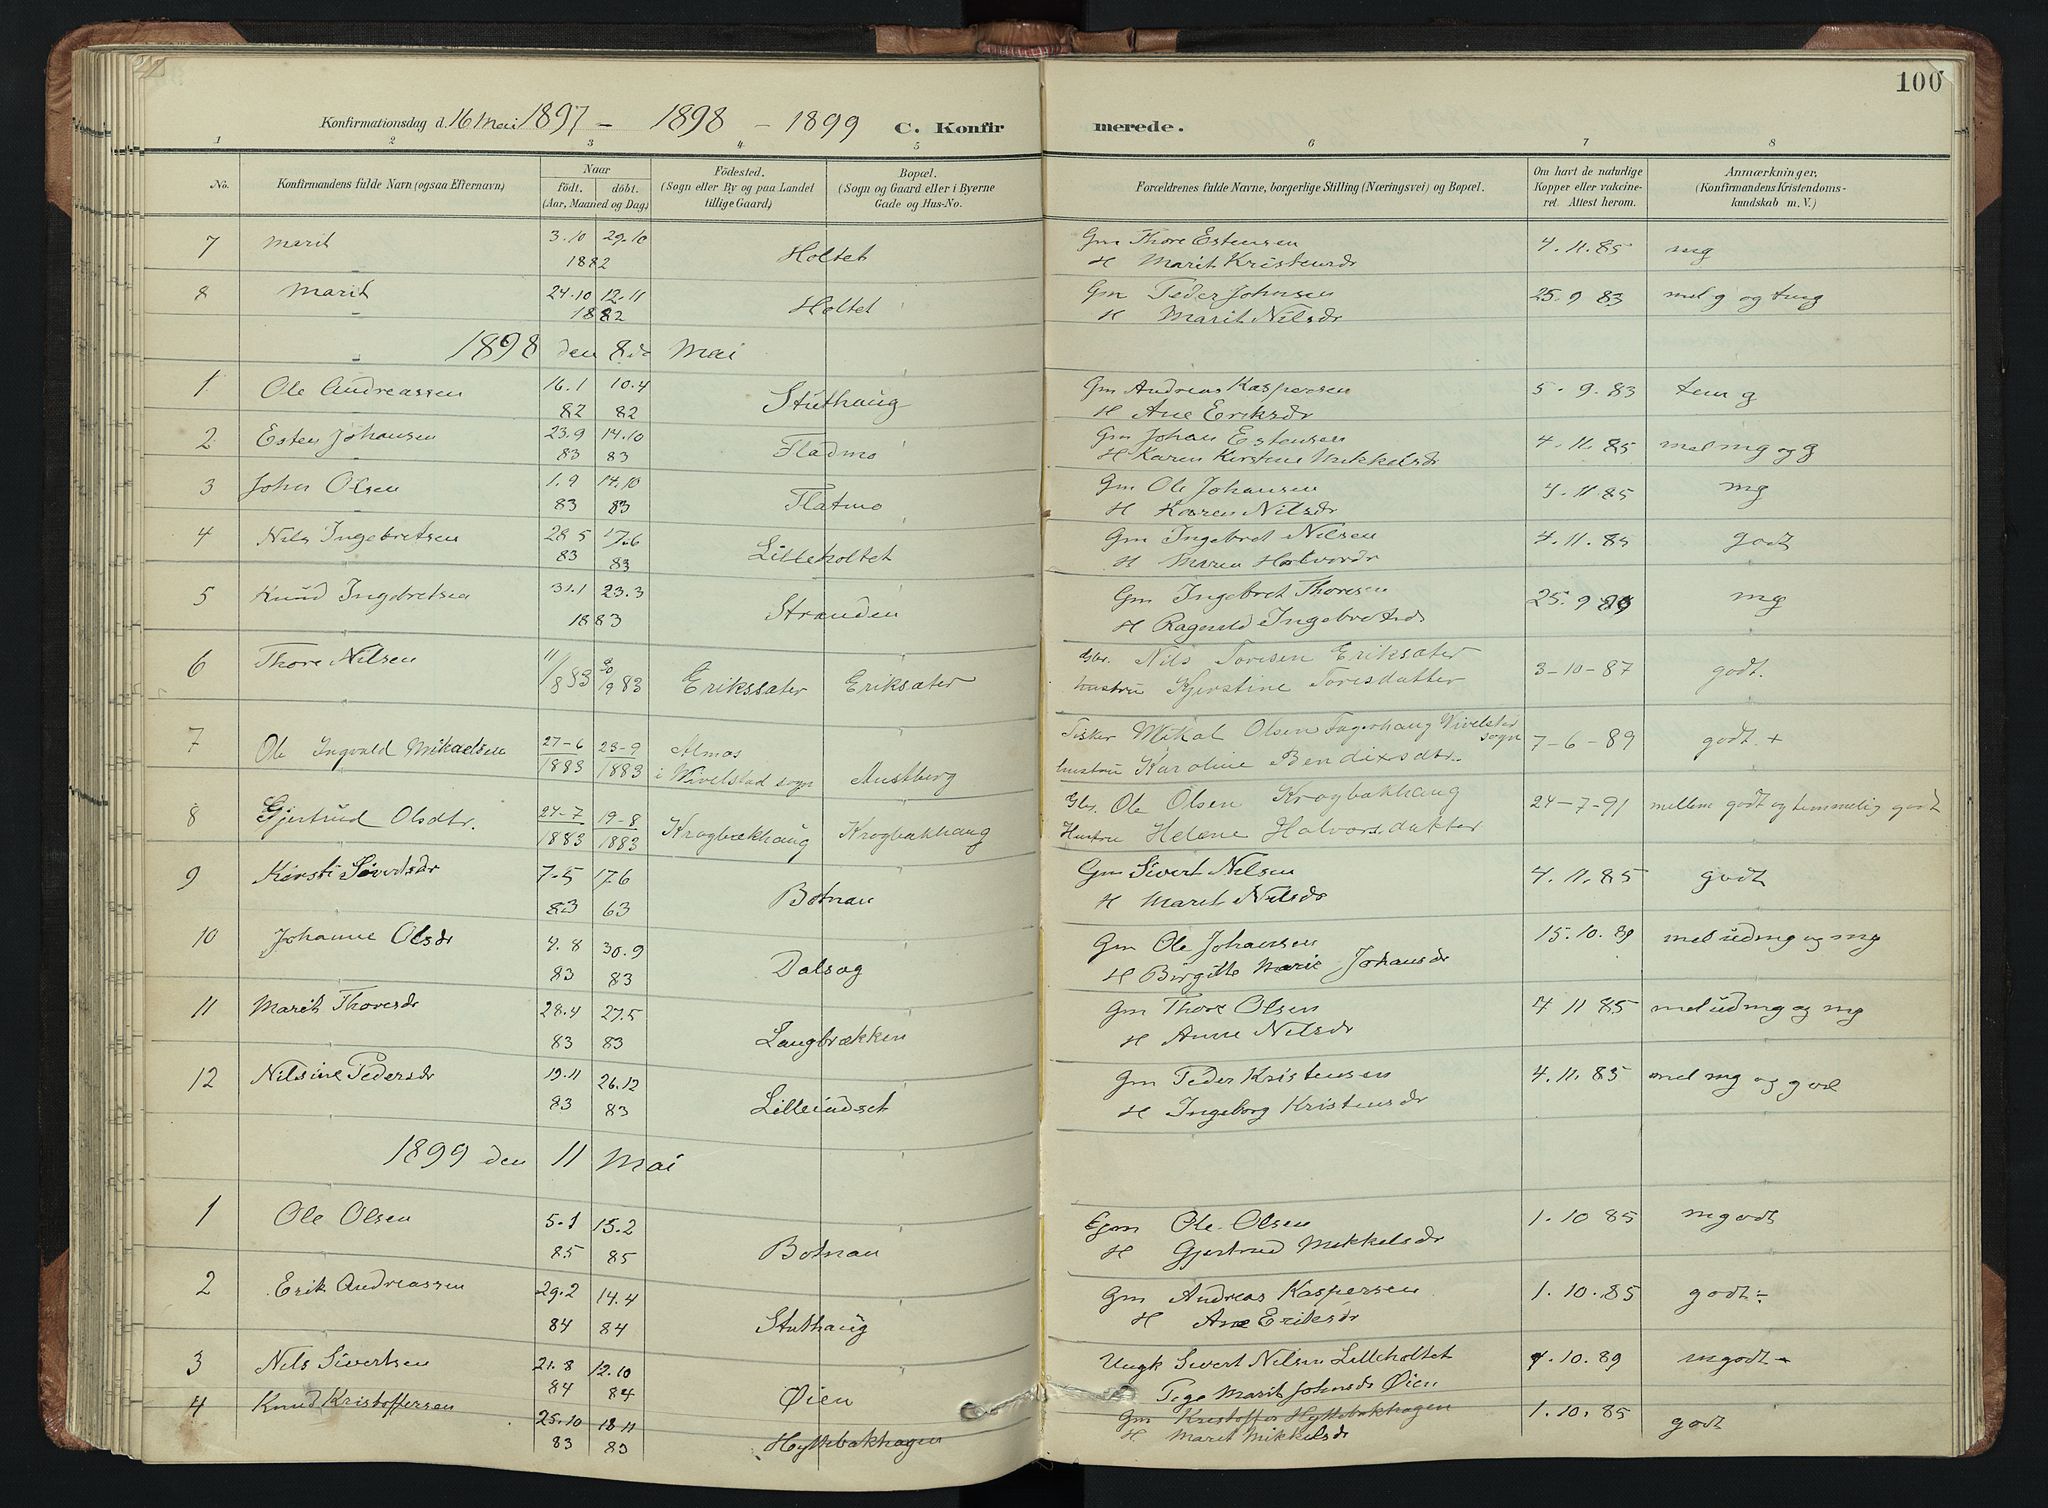 100
Konfirmationsdag d. 16 Mai 1897 - 1898 - 1899 C. Konfirmerede.
1 2 3 4 5 6 7 8
No. Konfirmandens fulde Navn (ogsaa Efternavn) Naar født. døbt. (Aar, Maaned og Dag) Fødested. (Sogn eller By og paa Landet tillige Gaard) Bopæl. (Sogn og Gaard eller i Byerne Gade og Hus-No. Forældrenes fulde Navne, borgerlige Stilling (Næringsvei) og Bopæl. Om havt de naturlige Kopper eller vakcineret. Attest herom. Anmærkninger. (Konfirmandens Kristendomskundskab m. V.)
7 Marit 3.10 29.10 Holtet Gm Thore Estensen 4.11.85 mg
1882 H Marit Kristensdr
8 Marit 24.10 12.11 Holtet Gm Peder Johnsen 25.9 83 mel g og tmg
1882 H Marit Nilsdr
1898 den 8de Mai
1 Ole Andreassen 16.1 10.4 Stuthaug Gm Andreas Kaspersen 5.9.83 tem g
82 82 H Ane Eriksdr
2 Esten Johansen 23.9 14.10 Fladmo Gm Johan Estensen 4.11.85 mel mg og g
83 83 H Karen Kirstine Mikkelsdr
3 John Olsen 1.9 14.10 Flatmo Gm Ole Johansen 4.11.85 mg
83 83 H Karen Nilsdr
4 Nils Ingebretsen 28 5 17.6 Lilleholtet Gm Ingebret Nilsen 4.11.85 godt
83 83 H Maren Halvordr
5 Knud Ingebretsen 31.1 23.3 Stranden Gm Ingebret Thoresen 25.9 mg
1883 H Ragnild Ingebretsd
6 Thore Nilsen Erikssæter Eriksæter Gbr. Nils Toresen Eriksæter 3-10-87 godt.
hustru Kjerstine Toresdatter
7 Ole Ingvald Mikaelsen 27-6 23-9 Almos Austberg Fisker Mikal Olsen Fagerhaug Vivelstad sogn 7-6-89 godt. +
1883 1883 i Vivelstad sogn hustru Karoline Bendixsdtr.
8 Gjertrud Olsdtr. 27-7 19-8 Krogbækhaug Krogbakhaug Gbr. Ole Olsen Krogbakhaug 24-7-91 mellem godt og temmelig godt
1883 1883 Hustru Helene Halvorsdatter
9 Kirsti Sivertsdr 7.5 17.6 Botnan Gm Sivert Nilsen 4.11.85 godt
83 63 H Marit Nilsdr
10 Johanne Olsdr 4.8 30.9 Dalsag Gm Ole Johansen 15.10.89 mel udmg og mg
83 83 H Birgitte Marie Johansdr
11 Marit Thoresdr 28.4 27.5 Langbrækken Gm Thore Olsen 4 11 85 mel udmg og mg
83 83 H Anne Nilsdr
12 Nilsine Pedersdr 19.11 26.12 Lilleindset Gm Peder Kristensen 4.11.85 mel mg og god
83 83 H Ingeborg Kristensdr
1899 den 11 Mai
1 Ole Olsen 5.1 15.2 Botnan Egm Ole Olsen 1.10 85 mgodt
85 85 H Gjertrud Mikkelsdr
2 Erik Andreassen 29.2 14.4 Stuthaug Gm Andreas Kaspersen 1.10.85 godt÷
84 84 H Ane Eriksdr
3 Nils Sivertsen 21.8 12.10 Øien Ungk Sivert Nilsen Lilleholtet 4.10.89 mgodt -
84 84 Pige Marit Johnsdr Øien
4 Knud Kristoffersen 25.10 18 11 Hyttebakhagen Gm Kristoffer Hyttebakhagen 1.10.85 godt
83 83 H Marit Mikkelsdr